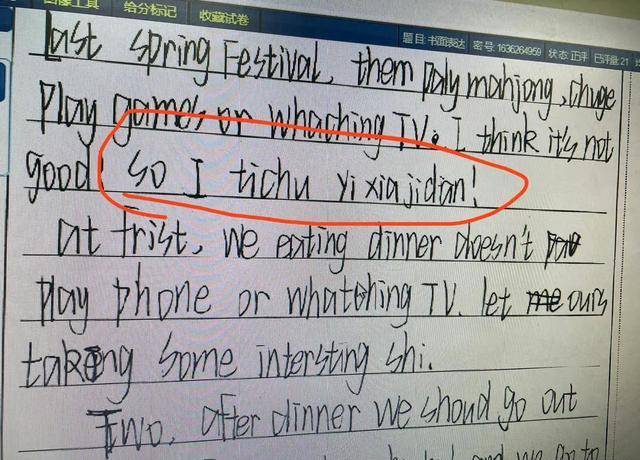 图像工具 给分标记 收藏试卷
题目:书面表达 密号:1636264959 状态:正评 已评量:21
last spring Festival, them paly mahjong, chuge
play games or whaching TV. I think it's not
good! so I tichu yi xia jidian!
at frist, we eating dinner doesn't
play phone or whatching TV. let ours
taking some intersting shi.
Two, after dinner we shoud go out
and we go to